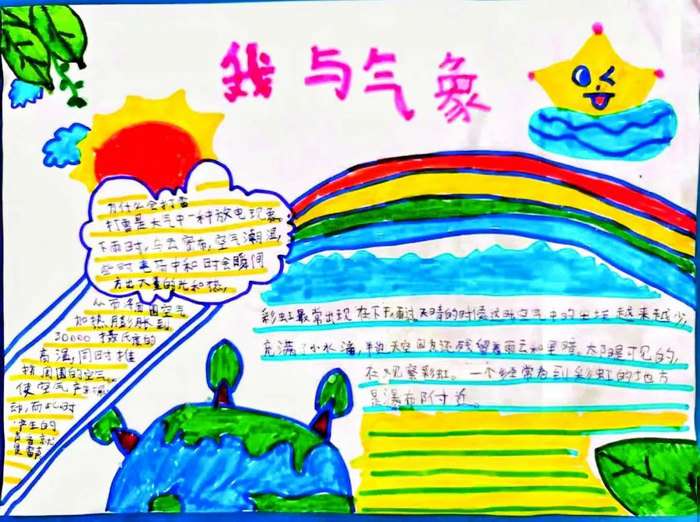 我与气象
为什么会打雷
打雷是大气中一种放电现象,
下雨时,乌云密布,空气潮湿,
此时电荷中和时会瞬间
产出大量的光和热,
从而使周围空气
加热膨胀到
30000摄氏度的
高温,同时推
挤周围的空气,
使空气产生
动,而此时
产生的
声音就
是雷声
彩虹最常出现在下雨过天晴的时
空气中的
越来越少,
充满了小水滴,
天空因
留着雨云和
太阳
可见的,
在观察彩虹。一个经常看到彩虹的地方
是瀑布附近。